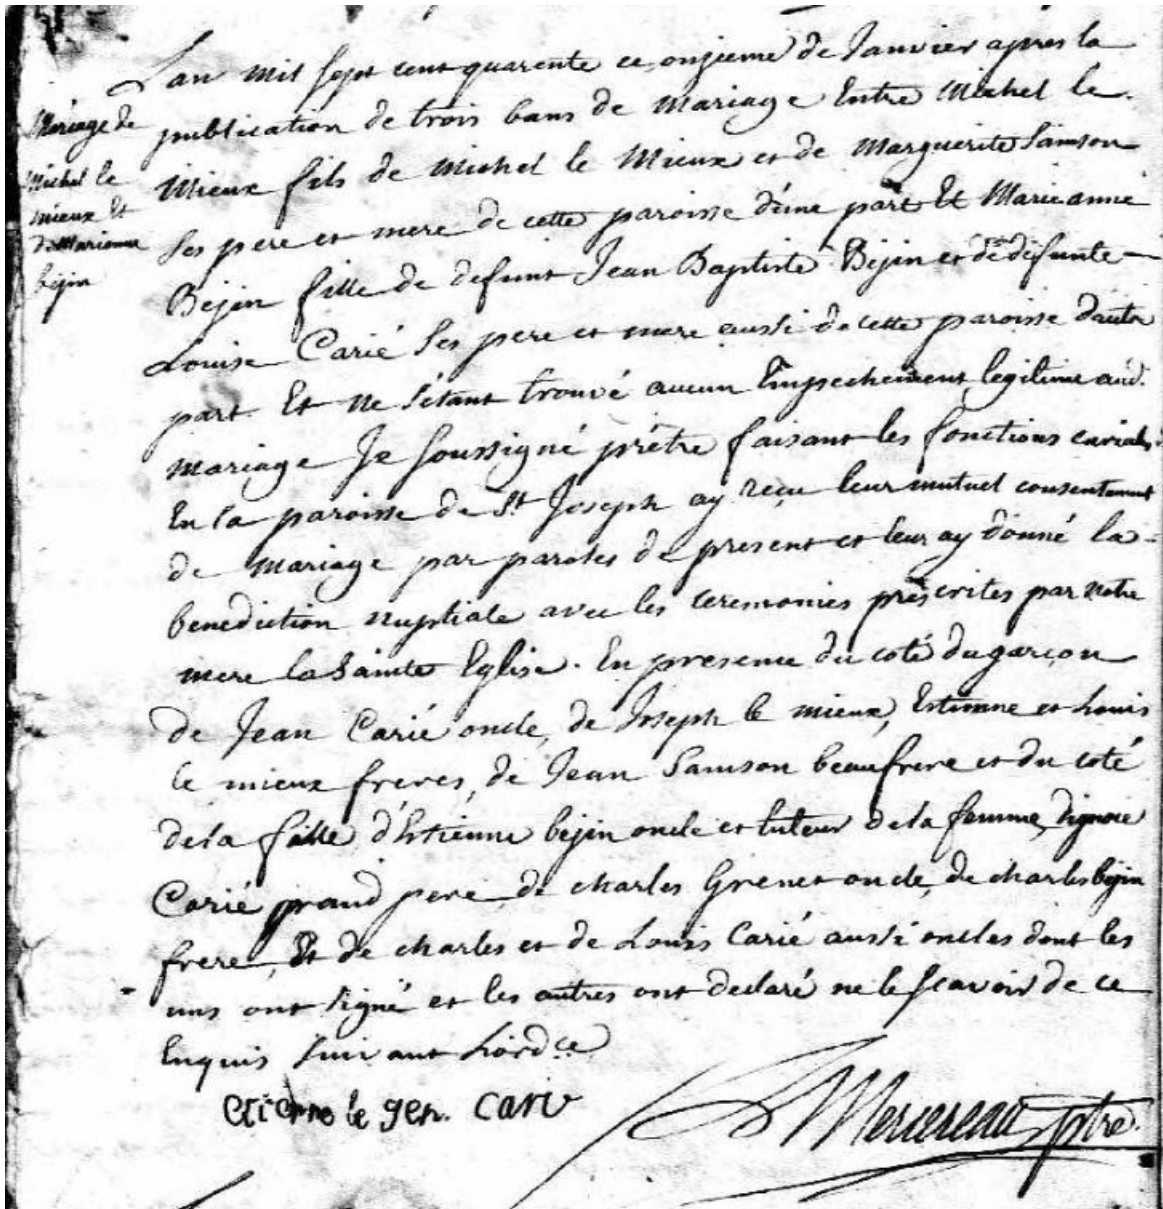 Mariage de
Michel le
mieux Et
de Marianne
bejin
Lan mil sept cent quarente ce onzieme de Janvier apres la
publication de trois bans de Mariage Entre Michel le
Mieux fils de Michel le Mieux et de Marguerite Samson
ses pere et mere de cette paroisse d'une part Et Marie anne
Bejin fille de defunt Jean Baptiste Bejin et de defunte
Louise Carié ses pere et mere aussi de cette paroisse dautre
part. Et ne s'étant trouvé aucun Empechement legitime aud.
mariage Je soussigné prêtre faisant les fonctions curiales
En la paroisse de St Joseph ay reçu leur mutuel consentement
de Mariage par paroles de present et leur ay donné la
benediction nuptiale avec les ceremonies prescrites par notre
mere la Sainte Eglise. En presence du coté du garçon
de Jean Carié oncle, de Joseph le mieux, Estienne et Louis
le mieux freres, de Jean Samson beaufrere et du coté
de la fille d'Estienne bejin oncle et tuteur de la femme, d'ignace
Carié grand pere, de charles Grenet oncle, de charles bejin
frere, Et de charles et de Louis Carié aussi oncles dont les
uns ont signé et les autres ont declaré ne le scavoir de ce
Enquis suivant Lord ce
etienne be gen. cari
Mercereau ptre.